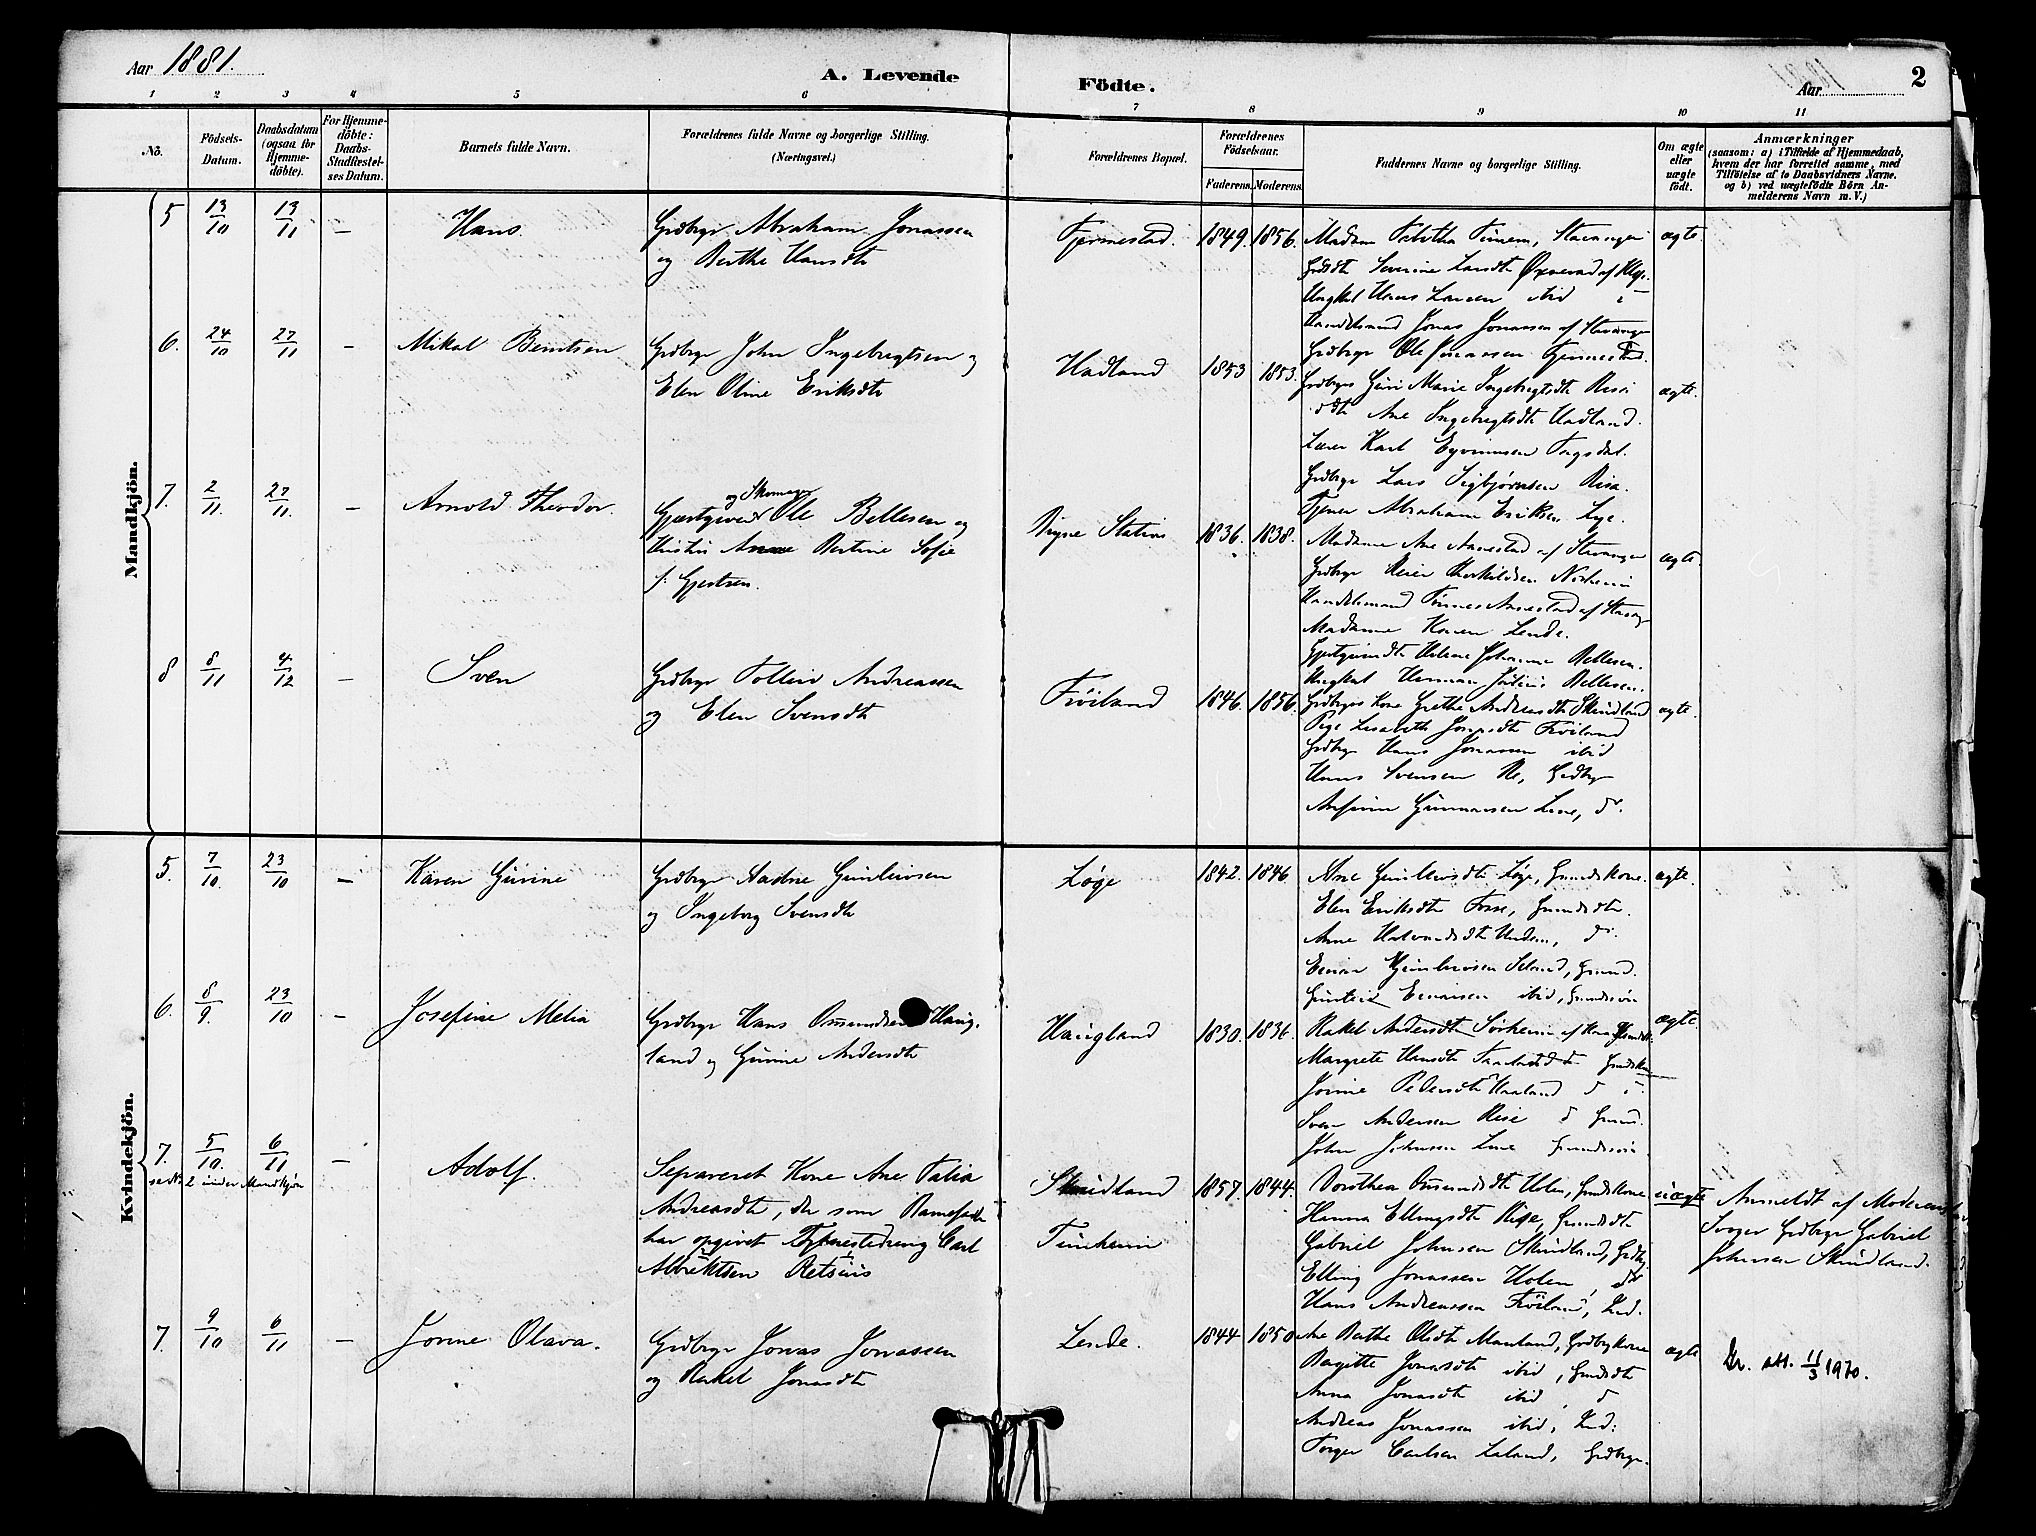 Aar 1881.
A. Levende Födte.
Aar
2
1 2 3 4 5 6 7 8 9 10 11
No.
Födsels-
Datum.
Daabsdatum
(ogsaa for
Hjemme-
döbte).
For Hjemme-
döbte:
Daabs-
Stadfæstel-
ses Datum.
Barnets fulde Navn.
Forældrenes fulde Navne og borgerlige Stilling.
(Næringsvei.)
Forældrenes Bopæl.
Forældrenes
Födselsaar.
Faderens. Moderens.
Faddernes Navne og borgerlige Stilling.
Om ægte
eller
uægte
födt.
Anmærkninger
(saasom: a) i Tilfælde af Hjemmedaab,
hvem der har forrettet samme, med
Tilföielse af to Daabsvidners Navne.
og b) ved uægtefödte Börn An-
melderens Navn m. V.)
Mandkjön.
5 13/10 13/11 –
Hans.
Grdbrgr Abraham Jonassen
og Berthe Hansdtr
1849. 1856.
Madam Tabitha Stavanger
Severine Larsdtr af Klep.
Ungkal Hans Larsen ibid
Handelsmand Jonas Jonassen af Stavanger
Grdbrgr Ole Jonassen
ægte.
6. 24/10 27/11 –
Mikal Berntsen
Grdbrgr John Ingebregtsen og
Elen Oline Eriksdtr
Hadland
1853 1853.
Marie Ingebregtsdtr Risa
Ane Ingebregtsdtr Hadland.
Lærer Karl
Grdbrgr Lars Sigbjørnsen Risa.
Tjener Abraham Eriksen Lye.
ægte.
7. 2/11. 27/11. –
Arnold Theodor.
og Skomager
Gjæstgiver Ole Bellesen og
Hustru Anne Bertine Sofie
f. Gjertsen.
Bryne Station
1836. 1838.
Madame Ane Aanestad af Stavanger
Grdbrgr Reier Thorkildsen Norheim
Handelsmand Tønnes Aanestad af Stavag
Madame Karen Lende.
Helene Johanne Bellesen.
Ungkal Herman Bellesen.
ægte
8 8/11 4/12 –
Sven
Grdbrgr Tollew Andreassen
og Elen Svensdtr
Fröiland
1846. 1856.
Grdbrgrs Kone Grethe Andreasdtr Skrudland
Pige Lisabeth Jonasdtr Fröiland
Grdbrgr Hans Jonassen ibid
Hans Svensen Re, Grdbrgr
Gunnarsen Line, do.
ægte.
Kvindekjön.
5. 7/10. 23/10 –
Karen Gurine
Grdbrgr Aadne Gunleivsen
og Ingeborg Svensdtr
Løge
1842. 1846
Ane Gunleivsdtr Løge, Grundskone.
Elen Eriksdtr Fosse, Grundsdtr.
Anne Halvardsdtr Undem, do.
Einar Gunleivsen Ueland, Grund.
Einarsen ibid, Grundssön
ægte.
6. 8/9. 23/10 –
Josefine Melia
Grdbrgr Hans Omundsen Haug-
land og Gurine Andersdtr
Haugland
1830. 1836.
Rakel Andersdtr Sørheim
Margrete Hansdtr Grundskone
Jorine Pedersdtr Haaland do
Sven Andersen Rise do Grund.
John Johnsen Line Grundssön.
ægte.
7. 5/10. 6/11 –
se No. 2 under Mandkjön
Adolf.
Separeret Kone Ane Talia
Andreasdtr, der som Barnefader
har opgivet Tjenestedreng Carl
Albriktsen Retsius
Skrudland
Tunheim
1857. 1844.
Dorothea Omundsdtr Holen, Grundskone
Hanna Ellingsdtr Rise, Grundsdtr
Gabriel Johnsen Skrudland, Grdbrgr
Elling Jonassen Holen, do
Hans Andreassen Fröiland, Ind.
uægte
Anmeldt af Moderens
Svoger Grdbrgr Gabriel
Johnsen Skrudland.
7. 9/10 6/11 –
Jorine Olava.
Grdbrgr Jonas Jonassen
og Rakel Jonasdtr
Lende.
1844 1850
Ane Berthe Olsdtr Maurland, Grdbrgkone
Bagitte Jonasdtr ibid, Grundsdtr
Anna Jonasdtr ibid do
Andreas Jonassen ibid, Ind.
Torger Carlsen Laland, Grdbrgr.
ægte
att. 11/3 1970.